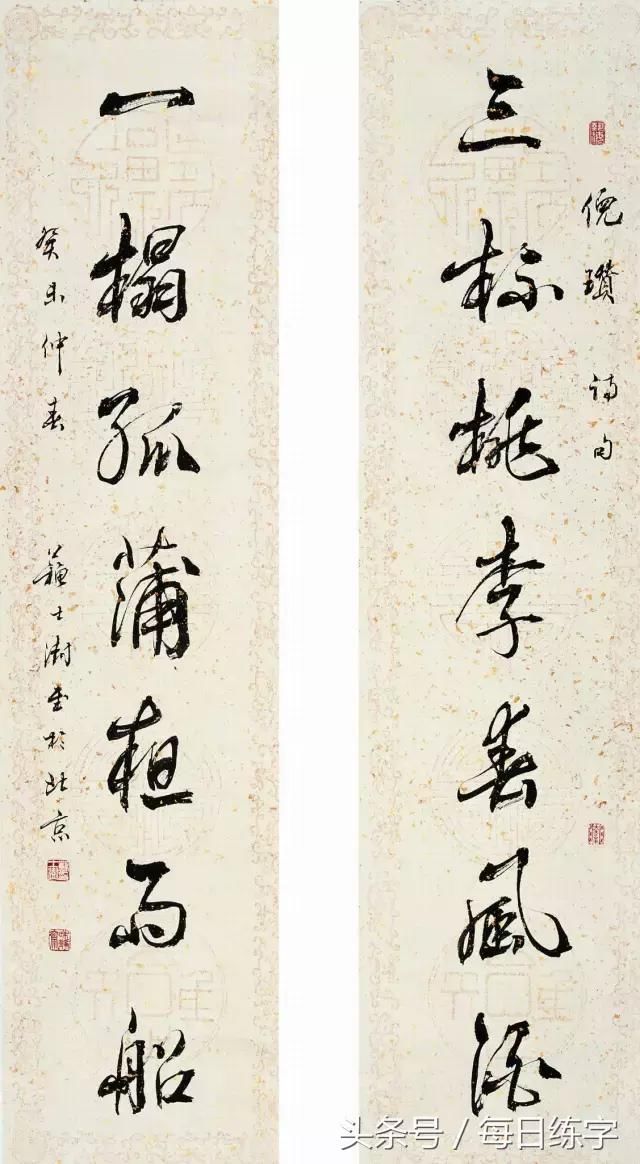 倪瓚 詩句
三杯桃李春風酒
一榻孤蒲雨船
癸未仲春 蘇士澍書於北京
头条号 / 每日练字